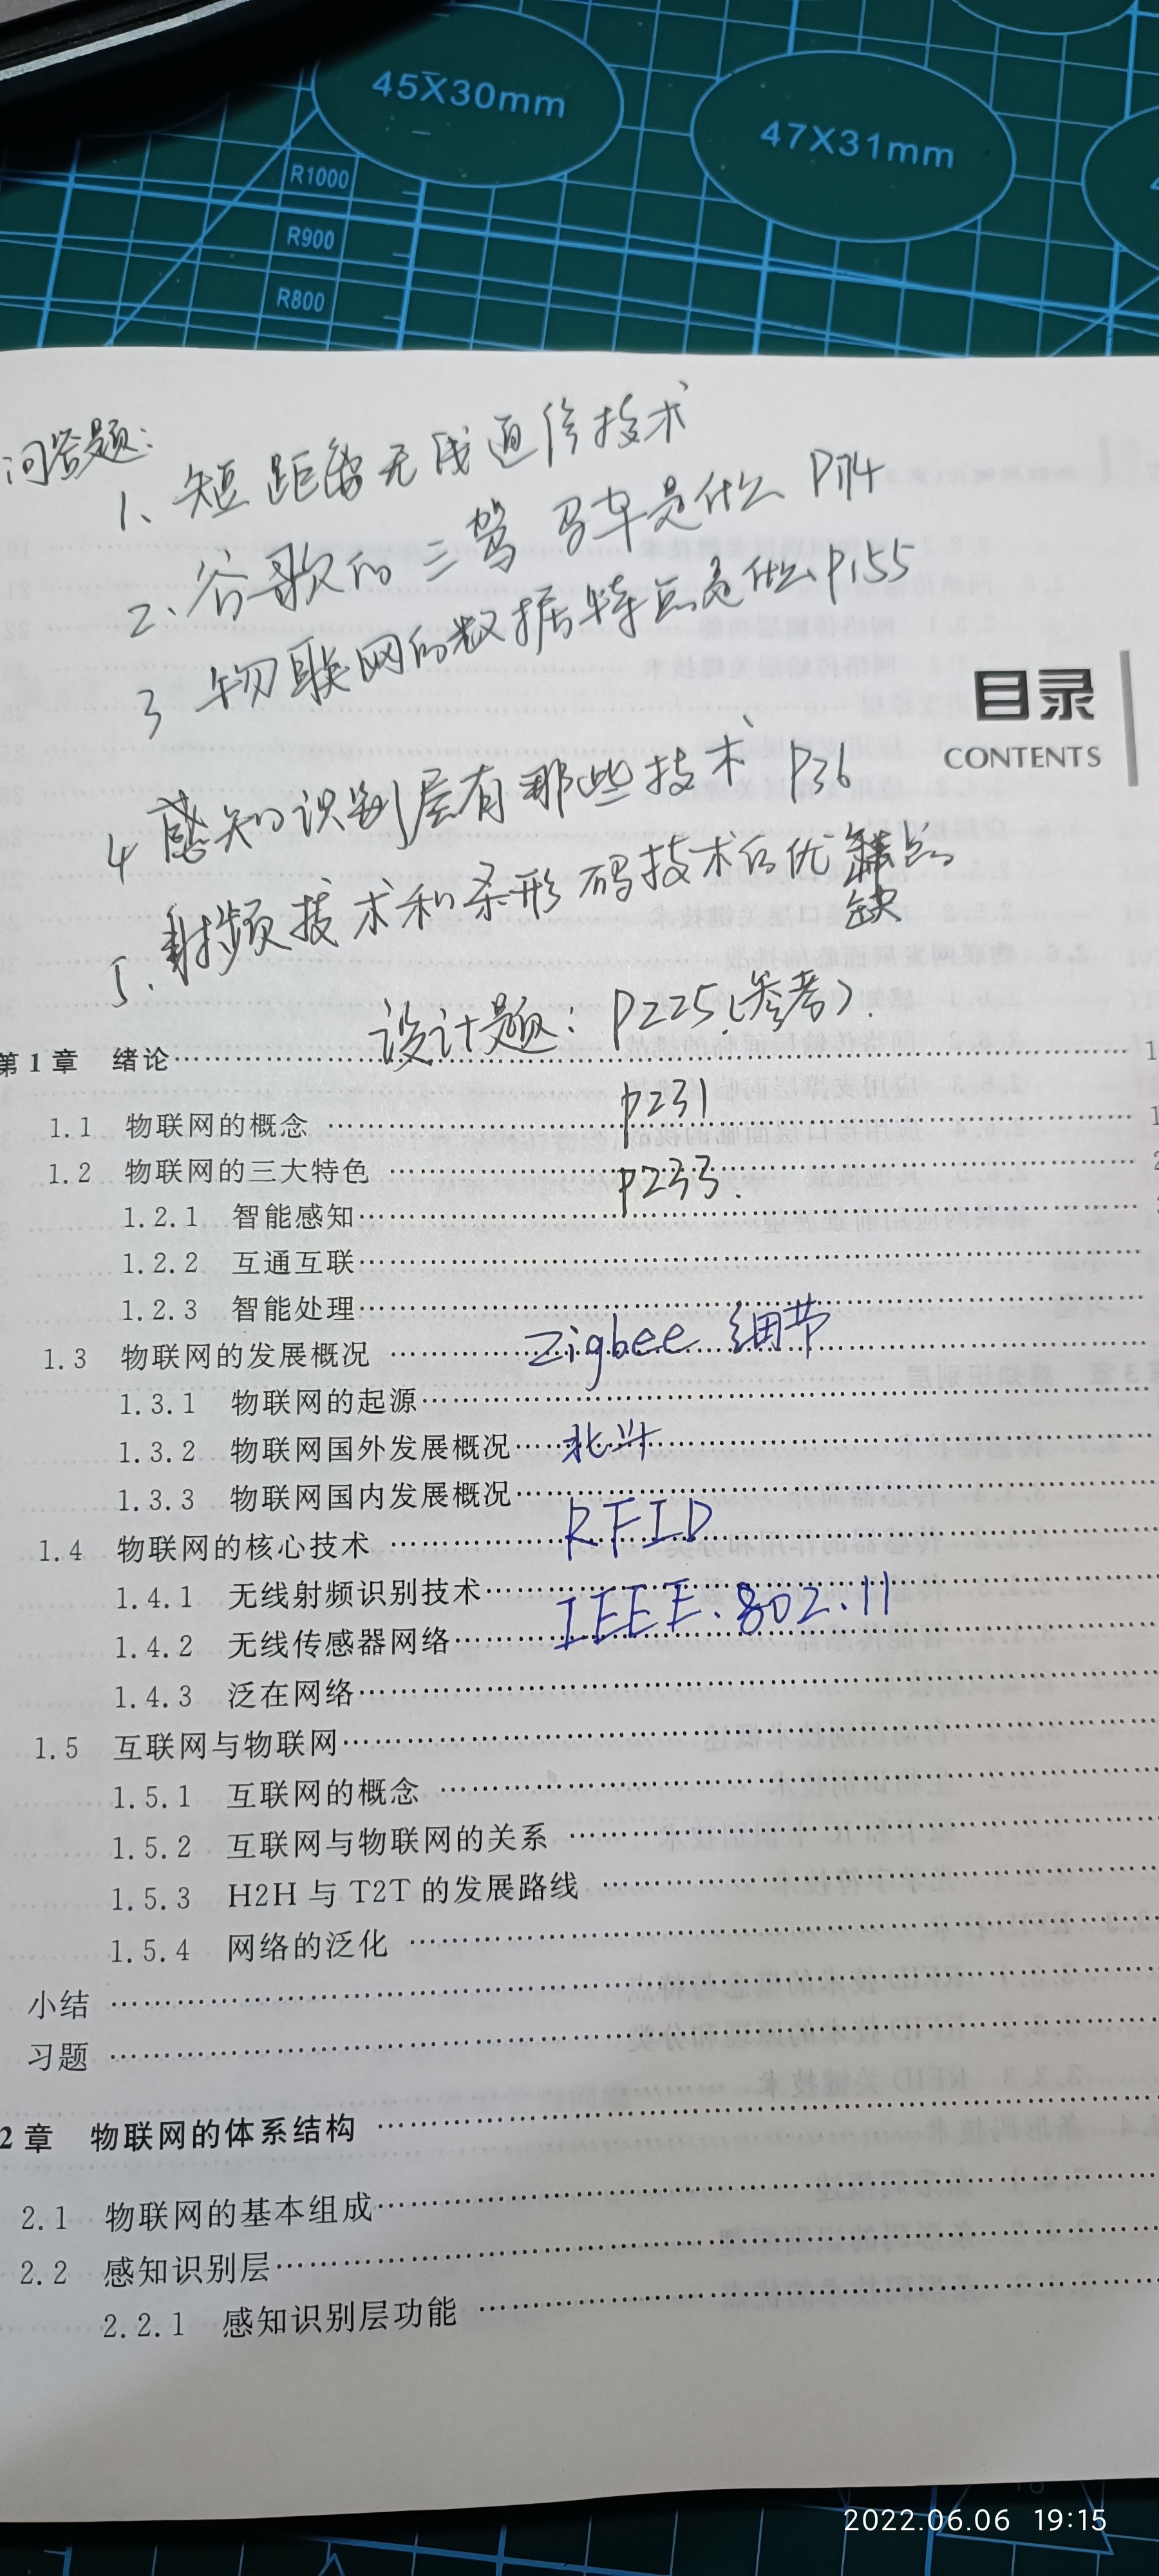 45X30mm
47X31mm
R1000
R900
R800
问答题:
1、短距离无线通信技术
2、谷歌的三驾马车是什么 P174
3 物联网的数据特点是什么 P155
目录
CONTENTS
4 感知识别层有那些技术 P36
5、射频技术和条形码技术的优缺点
设计题: P225(参考).
第1章 绪论 1
P231
1.1 物联网的概念 1
1.2 物联网的三大特色 2
P233.
1.2.1 智能感知
1.2.2 互通互联
1.2.3 智能处理
Zigbee 细节
1.3 物联网的发展概况
1.3.1 物联网的起源
1.3.2 物联网国外发展概况
北斗
1.3.3 物联网国内发展概况
RFID
1.4 物联网的核心技术
1.4.1 无线射频识别技术
IEEE.802.11
1.4.2 无线传感器网络
1.4.3 泛在网络
1.5 互联网与物联网
1.5.1 互联网的概念
1.5.2 互联网与物联网的关系
1.5.3 H2H与T2T的发展路线
1.5.4 网络的泛化
小结
习题
2章 物联网的体系结构
2.1 物联网的基本组成
2.2 感知识别层
2.2.1 感知识别层功能
2022.06.06 19:15